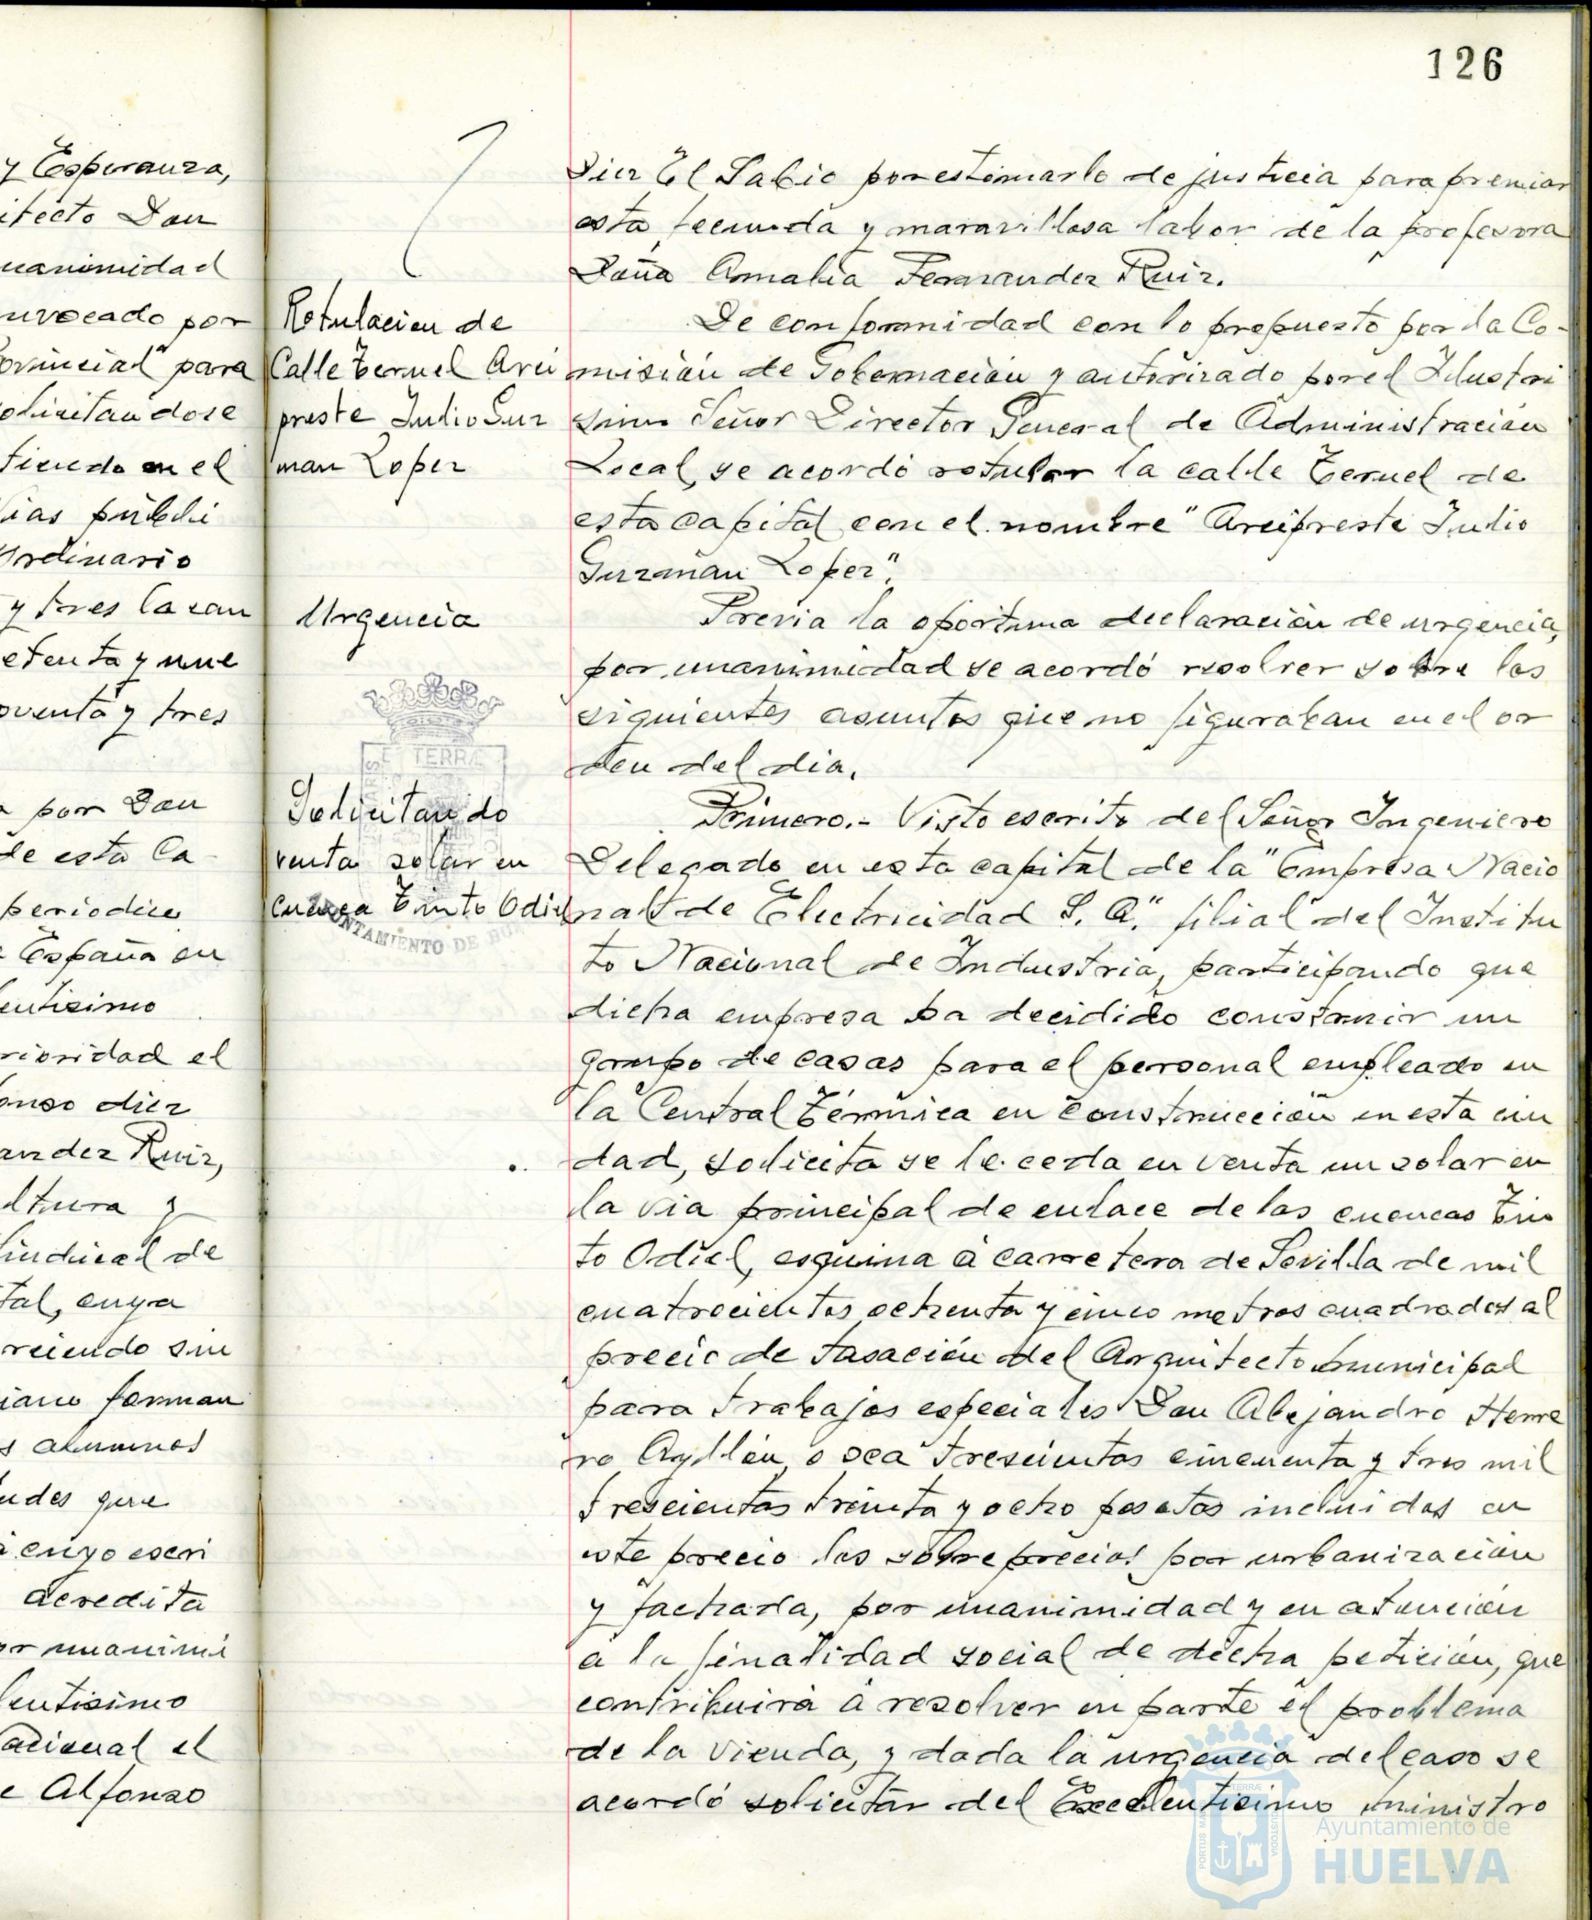 126
y Esperanza,
itecto Don
nanimidad
nvocado por
ovincial" para
olicitandose
tiendo en el
ias públi
ordinario
y tres la can
etenta y nue
oventa y tres
por Don
de esta Ca
periodico
España en
lentisimo
rioridad el
onso diez
andez Ruiz,
ltura y
indical de
tal, cuya
reciendo sin
iano forman
s alumnos
udes que
a cuyo escri
acredita
or unanimi
lentisimo
acional el
e Alfonso
Rotulacion de
Calle Teruel Arci
preste Julio Guz
man Lopez
Urgencia
Solicitando
venta solar en
cuenca Tinto Odiel
E TERRÆ
AYUNTAMIENTO DE HUELVA
Diez El Sabio por estimarlo de justicia para premiar
esta fecunda y maravillosa labor de la profesora
Doña Amalia Fernandez Ruiz.
De conformidad con lo propuesto por la Co-
misión de Gobernación y autorizado por el Ilustri
simo Señor Director General de Administración
Local, se acordó rotular la calle Teruel de
esta capital con el nombre "Arcipreste Julio
Guzman Lopez".
Previa la oportuna declaración de urgencia,
por unanimidad se acordó resolver sobre los
siguientes asuntos que no figuraban en el or
den del dia.
Primero.- Visto escrito del Señor Ingeniero
Delegado en esta capital de la "Empresa Nacio
nal de Electricidad S. A." filial del Institu
to Nacional de Industria, participando que
dicha empresa ha decidido construir un
grupo de casas para el personal empleado en
la Central Térmica en construcción en esta ciu
dad, solicita se le ceda en venta un solar en
la via principal de enlace de las cuencas Tin
to Odiel, esquina a carretera de Sevilla de mil
cuatrocientos ochenta y cinco metros cuadrados al
precio de tasación del Arquitecto municipal
para trabajos especiales Don Alejandro Herre
ro Ayllón, o sea trescientas cincuenta y tres mil
trescientas treinta y ocho pesetas incluidos en
este precio los sobreprecios por urbanización
y fachada, por unanimidad y en atención
a la finalidad social de dicha petición, que
contribuirá a resolver en parte el problema
de la vienda, y dada la urgencia del caso se
acordó solicitar del Excelentisimo ministro
Ayuntamiento de
HUELVA